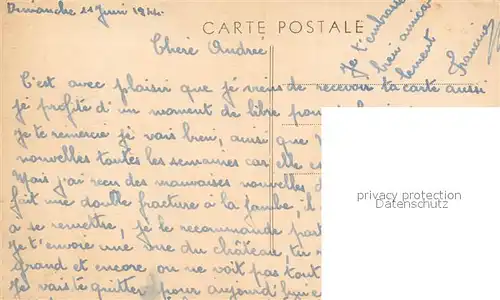 Dimanche 11 Juin 1944.
CARTE POSTALE
Chère Andrée
Je t'embrasse
bien amica
lement
Francine
C'est avec plaisir que je viens de recevoir ta carte aussi
je profite d'un moment de libre pour
Je te remercie je vais bien, ainsi que
nouvelles toutes les semaines car elle es
Mais j'ai reçu des mauvaises nouvelles d
fait une double fracture à la jambe, il
à se remettre, je le recommande
Je t'envoie une vue du château, tu
grand et encore on ne voit pas tout
Je vais te quitter pour aujourd'hui e
privacy protection
Datenschutz